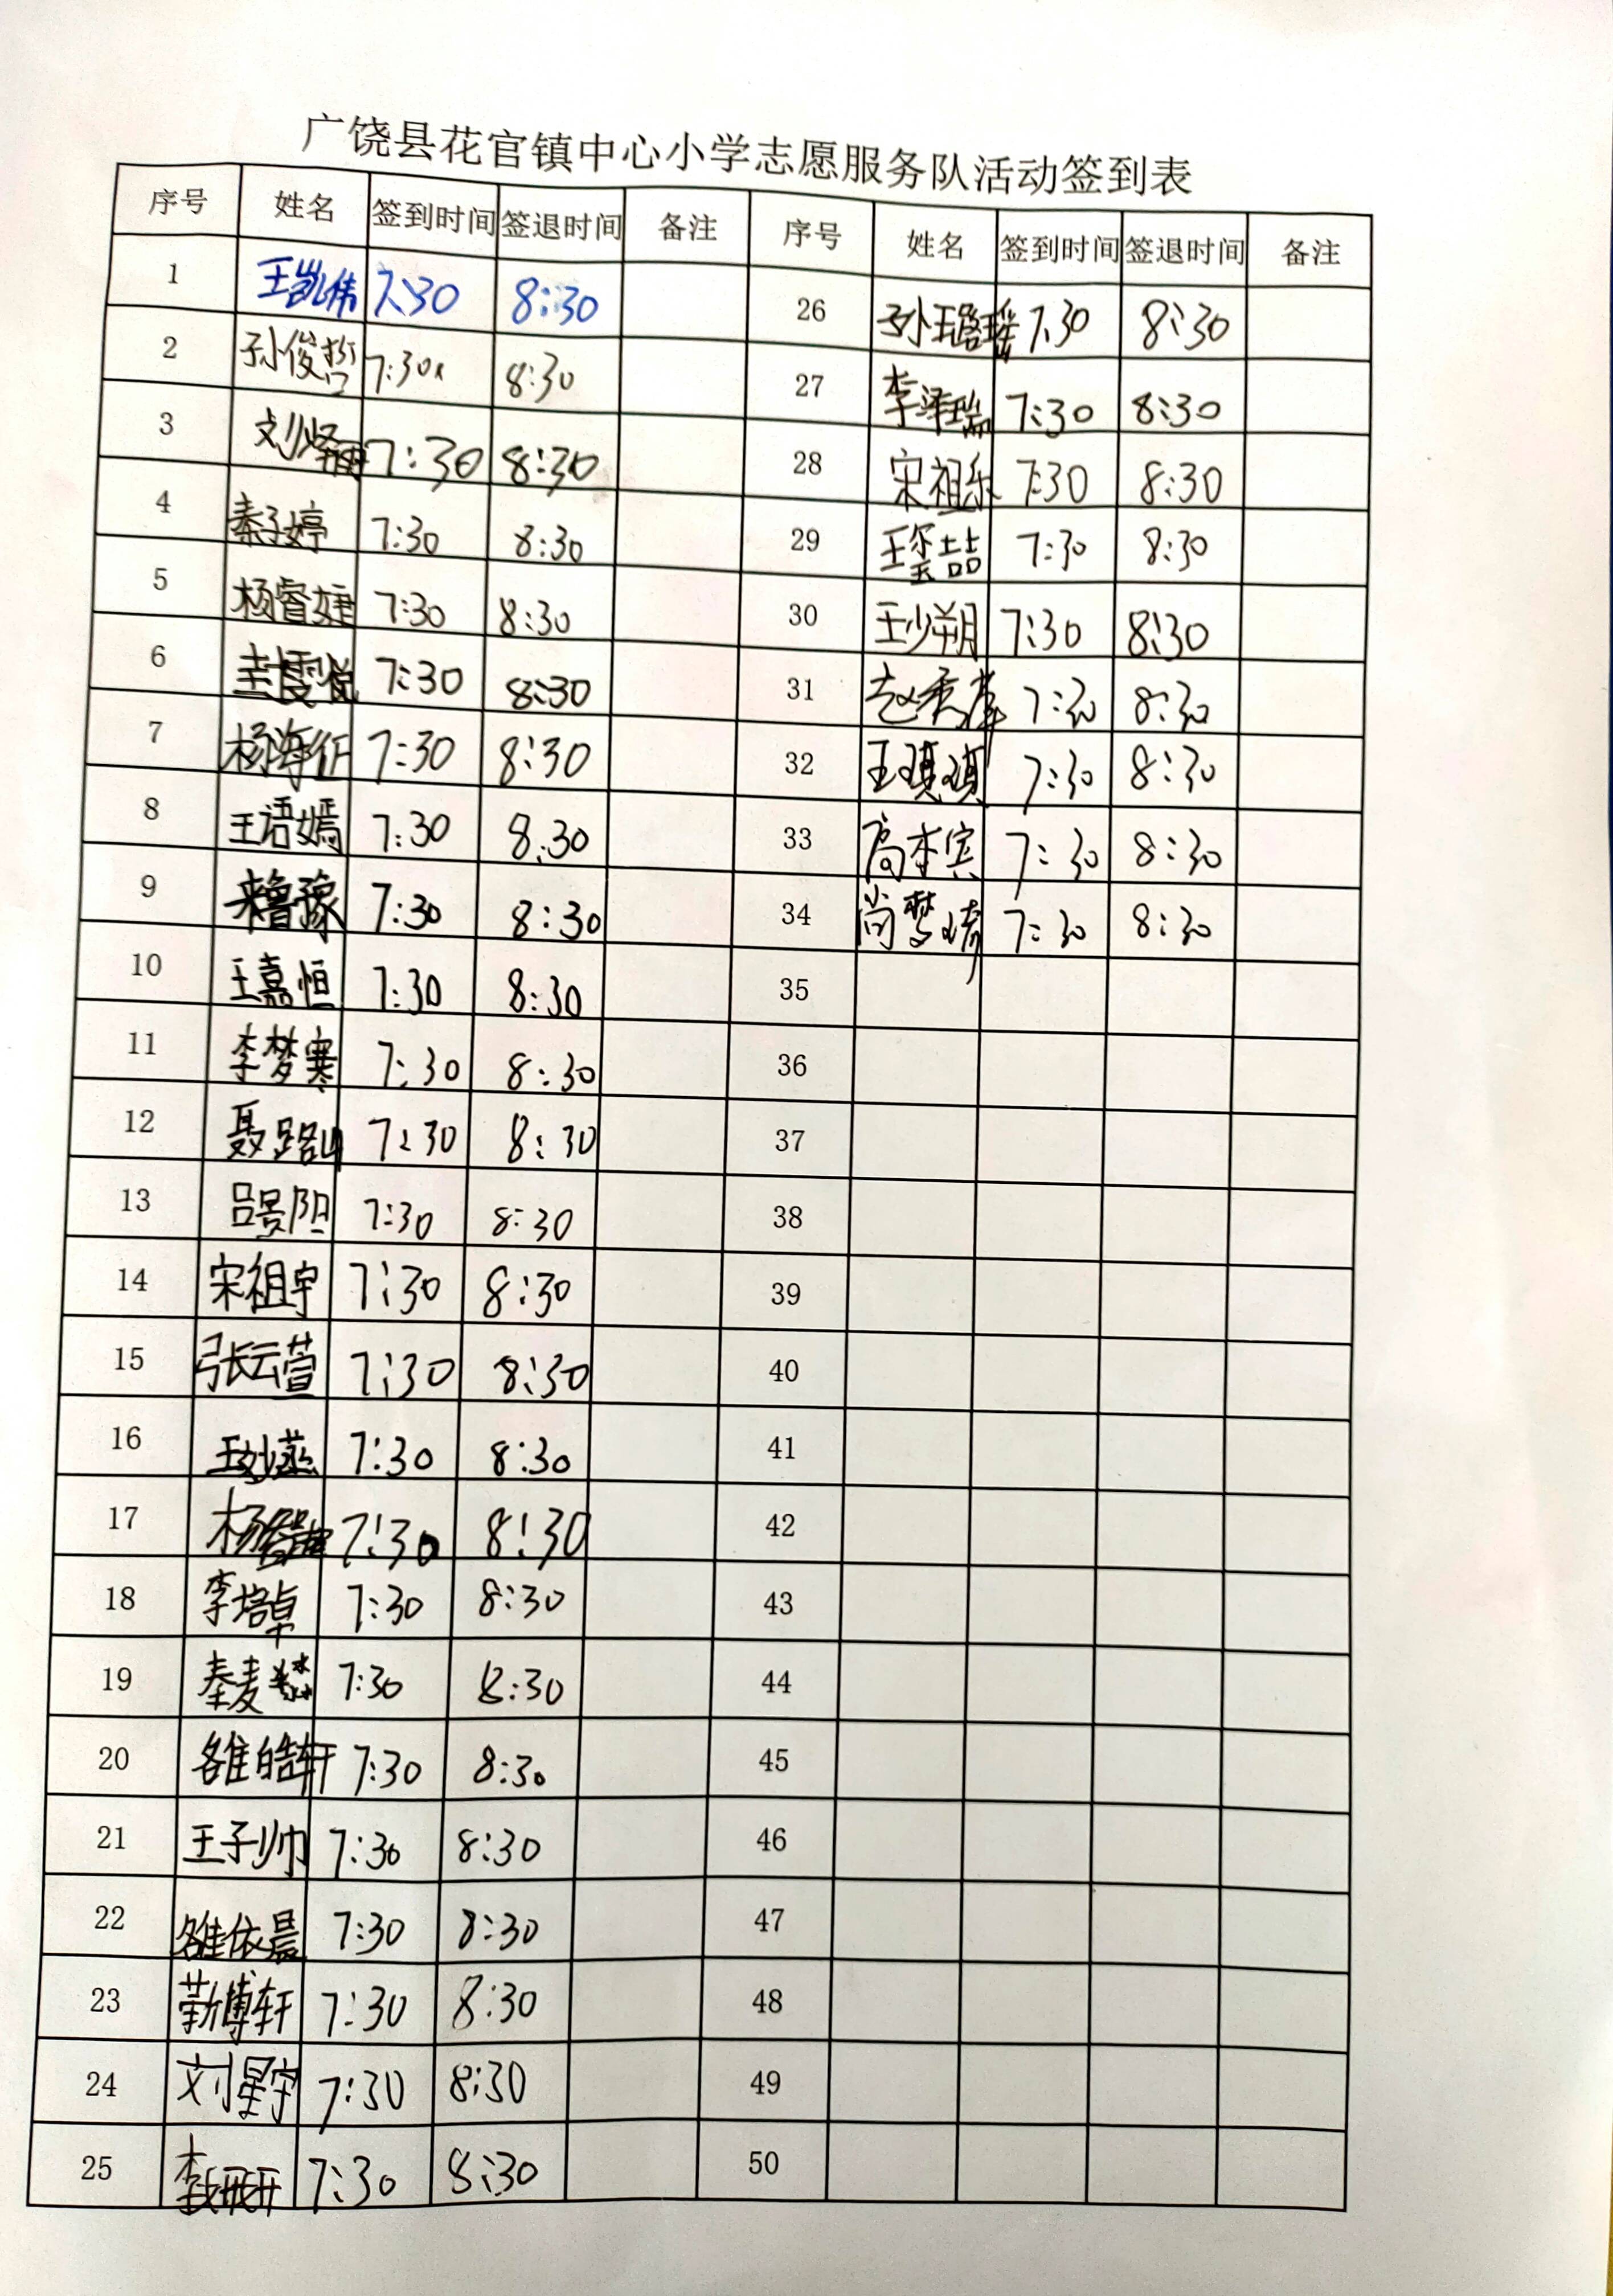 广饶县花官镇中心小学志愿服务队活动签到表
序号 姓名 签到时间 签退时间 备注 序号 姓名 签到时间 签退时间 备注
1 王凯伟 7:30 8:30 26 孙王璐瑶 7:30 8:30
2 孙俊哲 7:30 8:30 27 李泽瑞 7:30 8:30
3 刘 7:30 8:30 28 宋祖乐 7:30 8:30
4 秦子婷 7:30 8:30 29 王玺喆 7:30 8:30
5 杨睿婕 7:30 8:30 30 王少朔 7:30 8:30
6 7:30 8:30 31 赵 7:30 8:30
7 杨海征 7:30 8:30 32 王琪琪 7:30 8:30
8 王语嫣 7:30 8:30 33 高李宾 7:30 8:30
9 7:30 8:30 34 尚梦 7:30 8:30
10 王嘉恒 7:30 8:30 35
11 李梦寒 7:30 8:30 36
12 聂路 7:30 8:30 37
13 吕景阳 7:30 8:30 38
14 宋祖宇 7:30 8:30 39
15 张云萱 7:30 8:30 40
16 王妙 7:30 8:30 41
17 杨 7:30 8:30 42
18 李培卓 7:30 8:30 43
19 秦麦 7:30 8:30 44
20 雒皓轩 7:30 8:30 45
21 王子帅 7:30 8:30 46
22 雒依晨 7:30 8:30 47
23 靳博轩 7:30 8:30 48
24 刘星宇 7:30 8:30 49
25 李 7:30 8:30 50